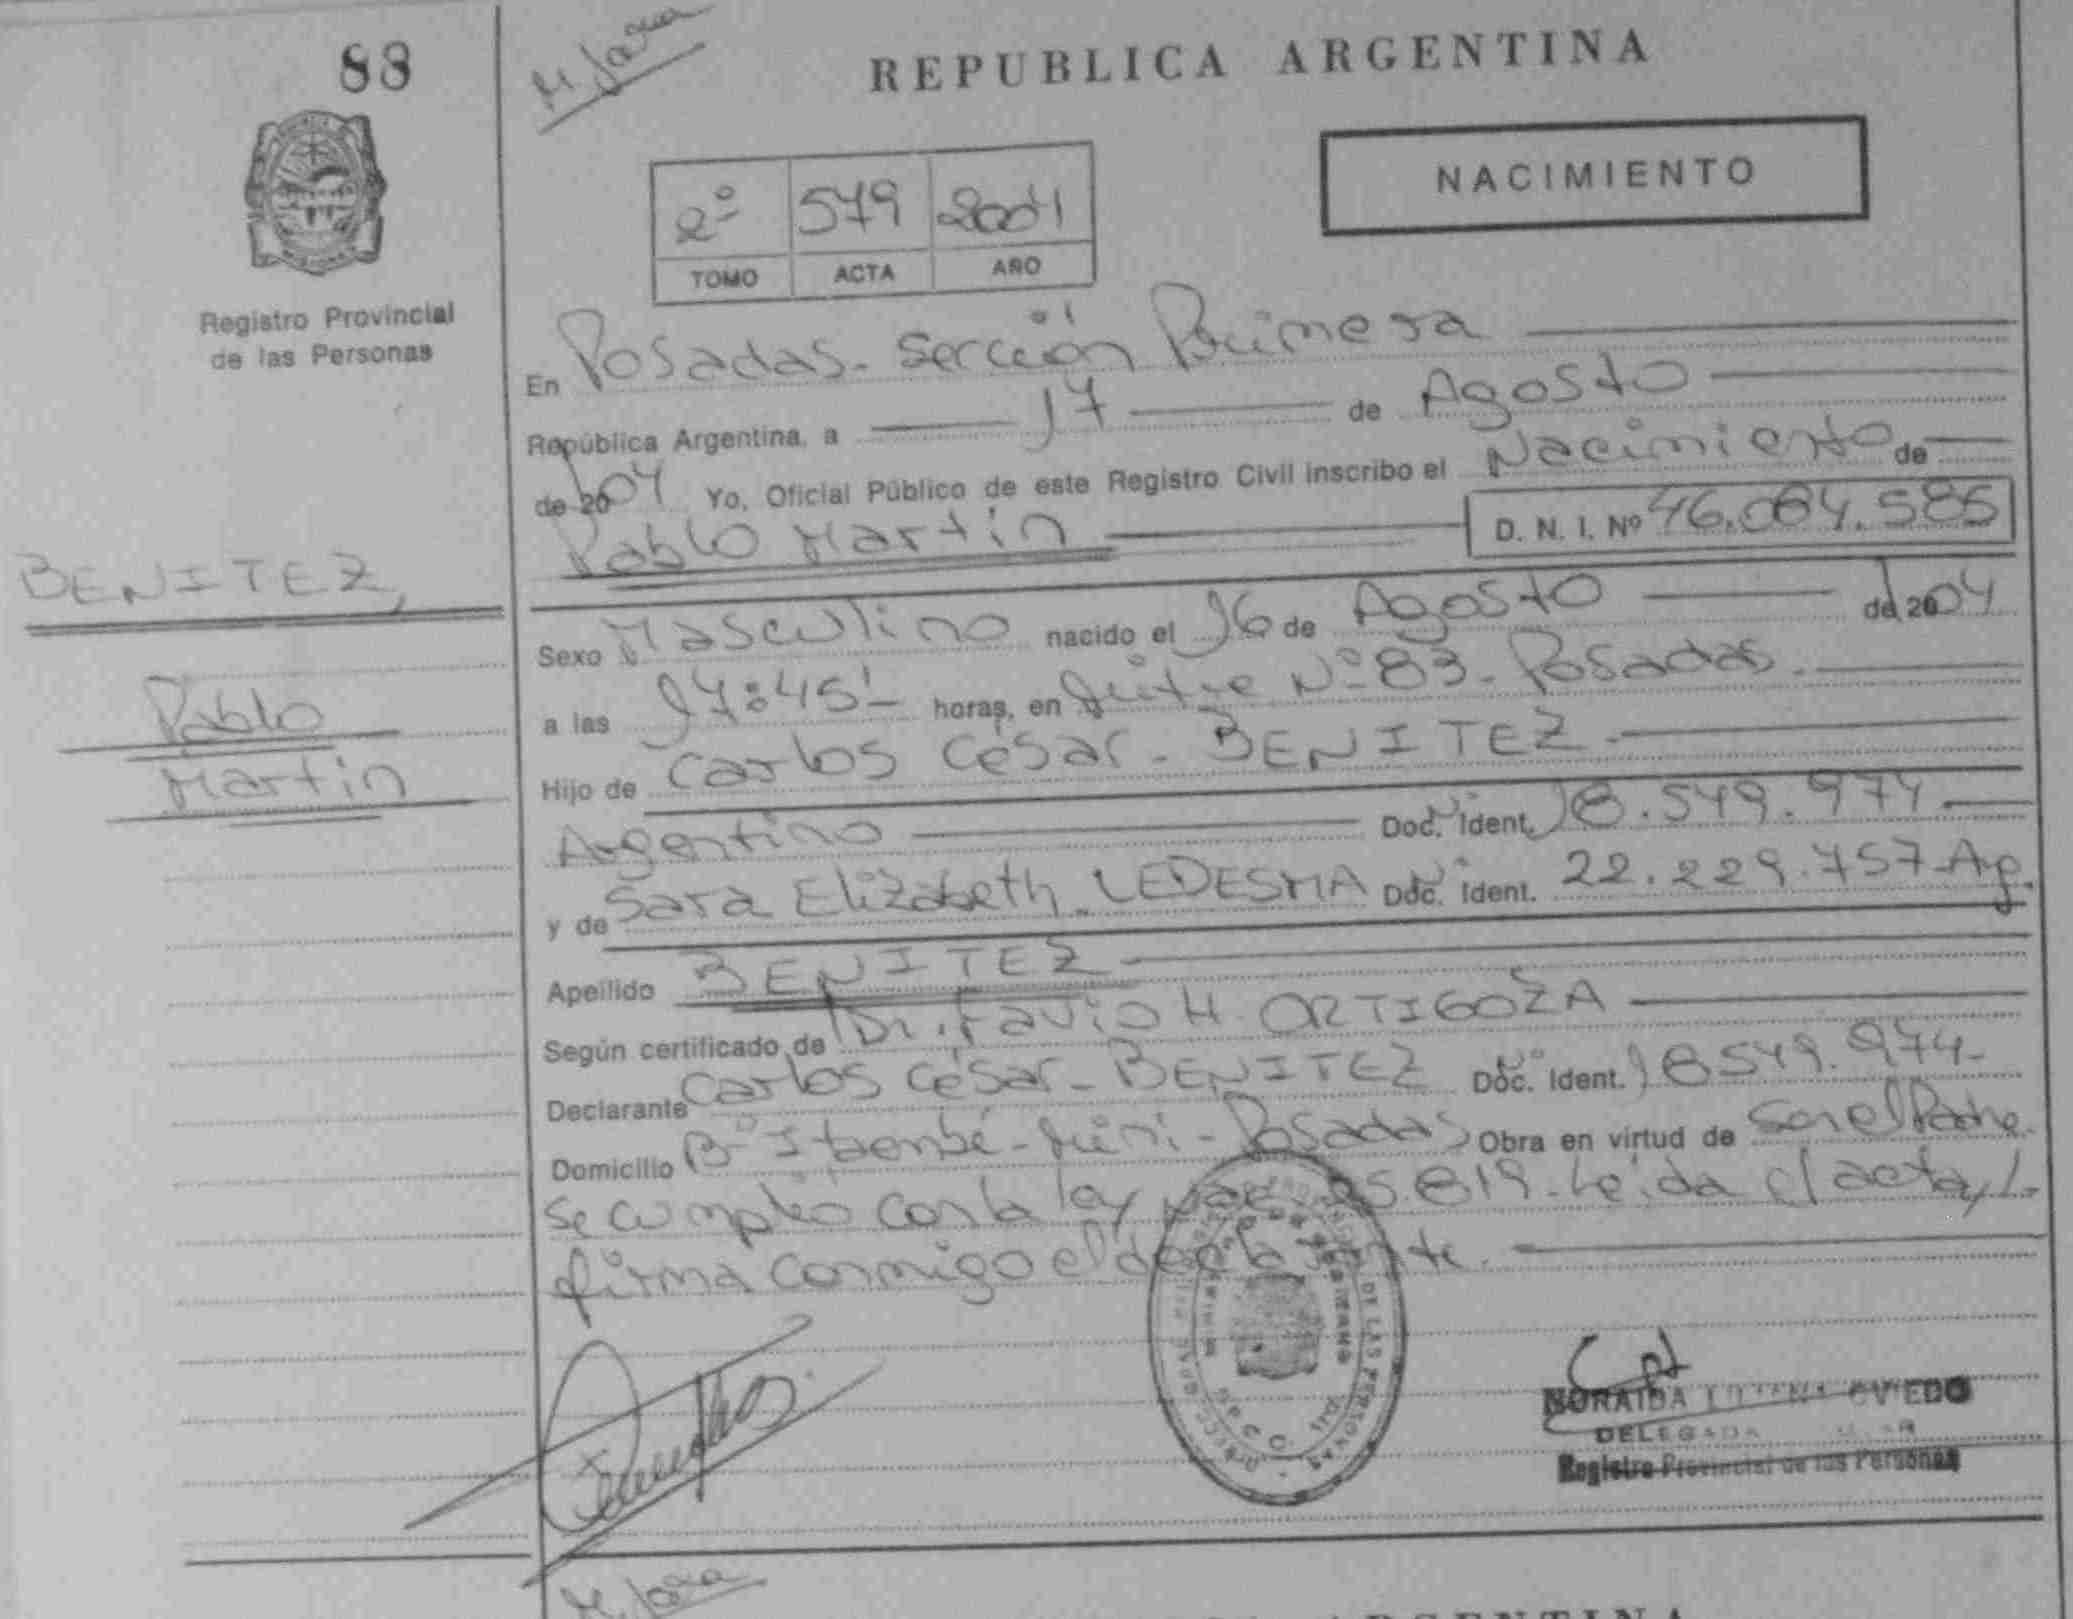 88
M. Jara
REPUBLICA ARGENTINA
NACIMIENTO
2º 579 2004
TOMO ACTA AÑO
Registro Provincial
de las Personas
En Posadas - Sección Primera
República Argentina, a 17 de Agosto
de 2004 Yo, Oficial Público de este Registro Civil inscribo el Nacimiento de
Pablo Martin D. N. I. Nº 46.084.585
BENITEZ,
Pablo
Martin
Sexo Masculino nacido el 16 de Agosto de 2004
a las 17:45' horas, en Nº 83 - Posadas
Hijo de Carlos César - BENITEZ
Argentino Doc. Ident. 18.549.974
y de Sara Elizabeth - LEDESMA Doc. Ident. 22.229.757 - Ag.
Apellido BENITEZ
Según certificado de Dr. Favio H. ORTIGOZA
Declarante Carlos César - BENITEZ Doc. Ident. 18.549.974 -
Domicilio Bº Itaembé - Miní - Posadas Obra en virtud de Ser el Padre -
Se cumplió con la ley 25.819 - Leída el acta, L
firma conmigo el declarante.
DE LAS PERSONAS
NORAIDA OVIEDO
DELEGADA
Registro Provincial de las Personas
M. Jara
ARGENTINA